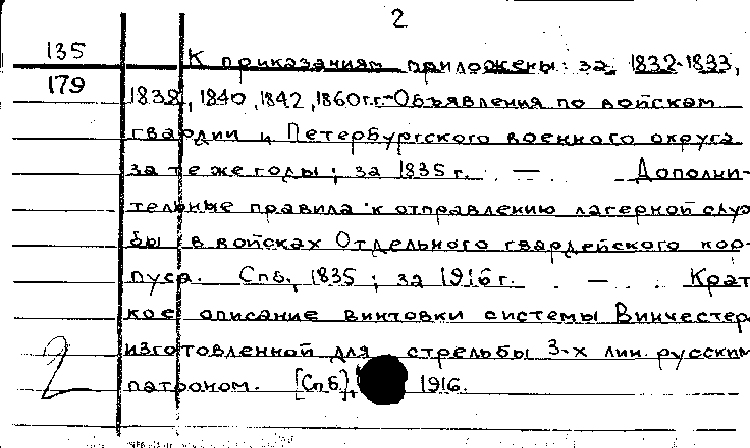 2
135
179
К приказаниям приложены: за 1832-1833,
1838, 1840, 1842, 1860г.г.-Объявления по войскам
гвардии и Петербургского военного округа
за те же годы; за 1835 г. . — . Дополни-
тельные правила к отправлению лагерной служ
бы в войсках Отдельного гвардейского кор-
пуса. Спб., 1835 ; за 1916 г. . — . . Крат
кое описание винтовки системы Винчестер,
изготовленной для стрельбы 3-х лин. русским
патроном. [Спб], 1916.
2